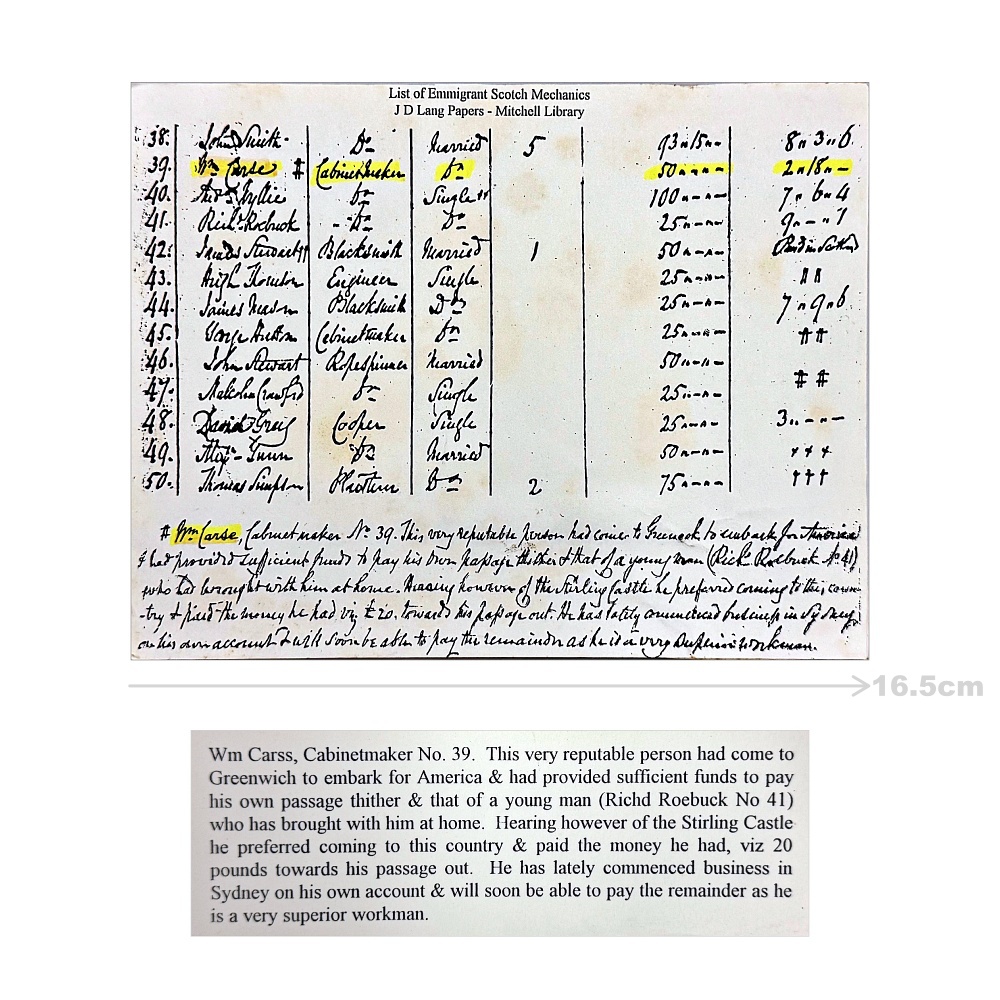 List of Emmigrant Scotch Mechanics
J D Lang Papers - Mitchell Library
38. John Smith Do Married 5 93"15"- 8"3"6
39. Wm Carse # Cabinetmaker Do 50"-"- 2"18"-
40. Wyllie Do Single 100"-"- 7"6"4
41. Richd Roebuck - Do Do 25"-"- 9"-"7
42. James Stewart Blacksmith Married 1 50"-"-
43. Hugh Thomson Engineer Single 25"-"-
44. James Mason Blacksmith Do 25"-"- 7"9"6
45. George Hutton Cabinetmaker Do 25"-"- ‡‡
46. John Stewart Ropespinner Married 50"-"-
47. Malcolm Crawford Do Single 25"-"- ‡ ‡
48. David Greig Cooper Single 25"-"- 3"-"-
49. Alexr Gunn Do Married 50"-"- † † †
50. Thomas Simpson Plasterer Do 2 75"-"- †††
# Wm Carse, Cabinetmaker No. 39. This very reputable person had come to Greenock to embark for America
& had provided sufficient funds to pay his own passage thither & that of a young man (Richd Roebuck No 41)
who had wrought with him at home. Hearing however of the Stirling Castle he preferred coming to this coun-
-try & paid the money he had viz £20. towards his passage out. He has lately commenced business in Sydney
on his own account & will soon be able to pay the remainder as he is a very superior workman.
16.5cm
Wm Carss, Cabinetmaker No. 39. This very reputable person had come to
Greenwich to embark for America & had provided sufficient funds to pay
his own passage thither & that of a young man (Richd Roebuck No 41)
who has brought with him at home. Hearing however of the Stirling Castle
he preferred coming to this country & paid the money he had, viz 20
pounds towards his passage out. He has lately commenced business in
Sydney on his own account & will soon be able to pay the remainder as he
is a very superior workman.